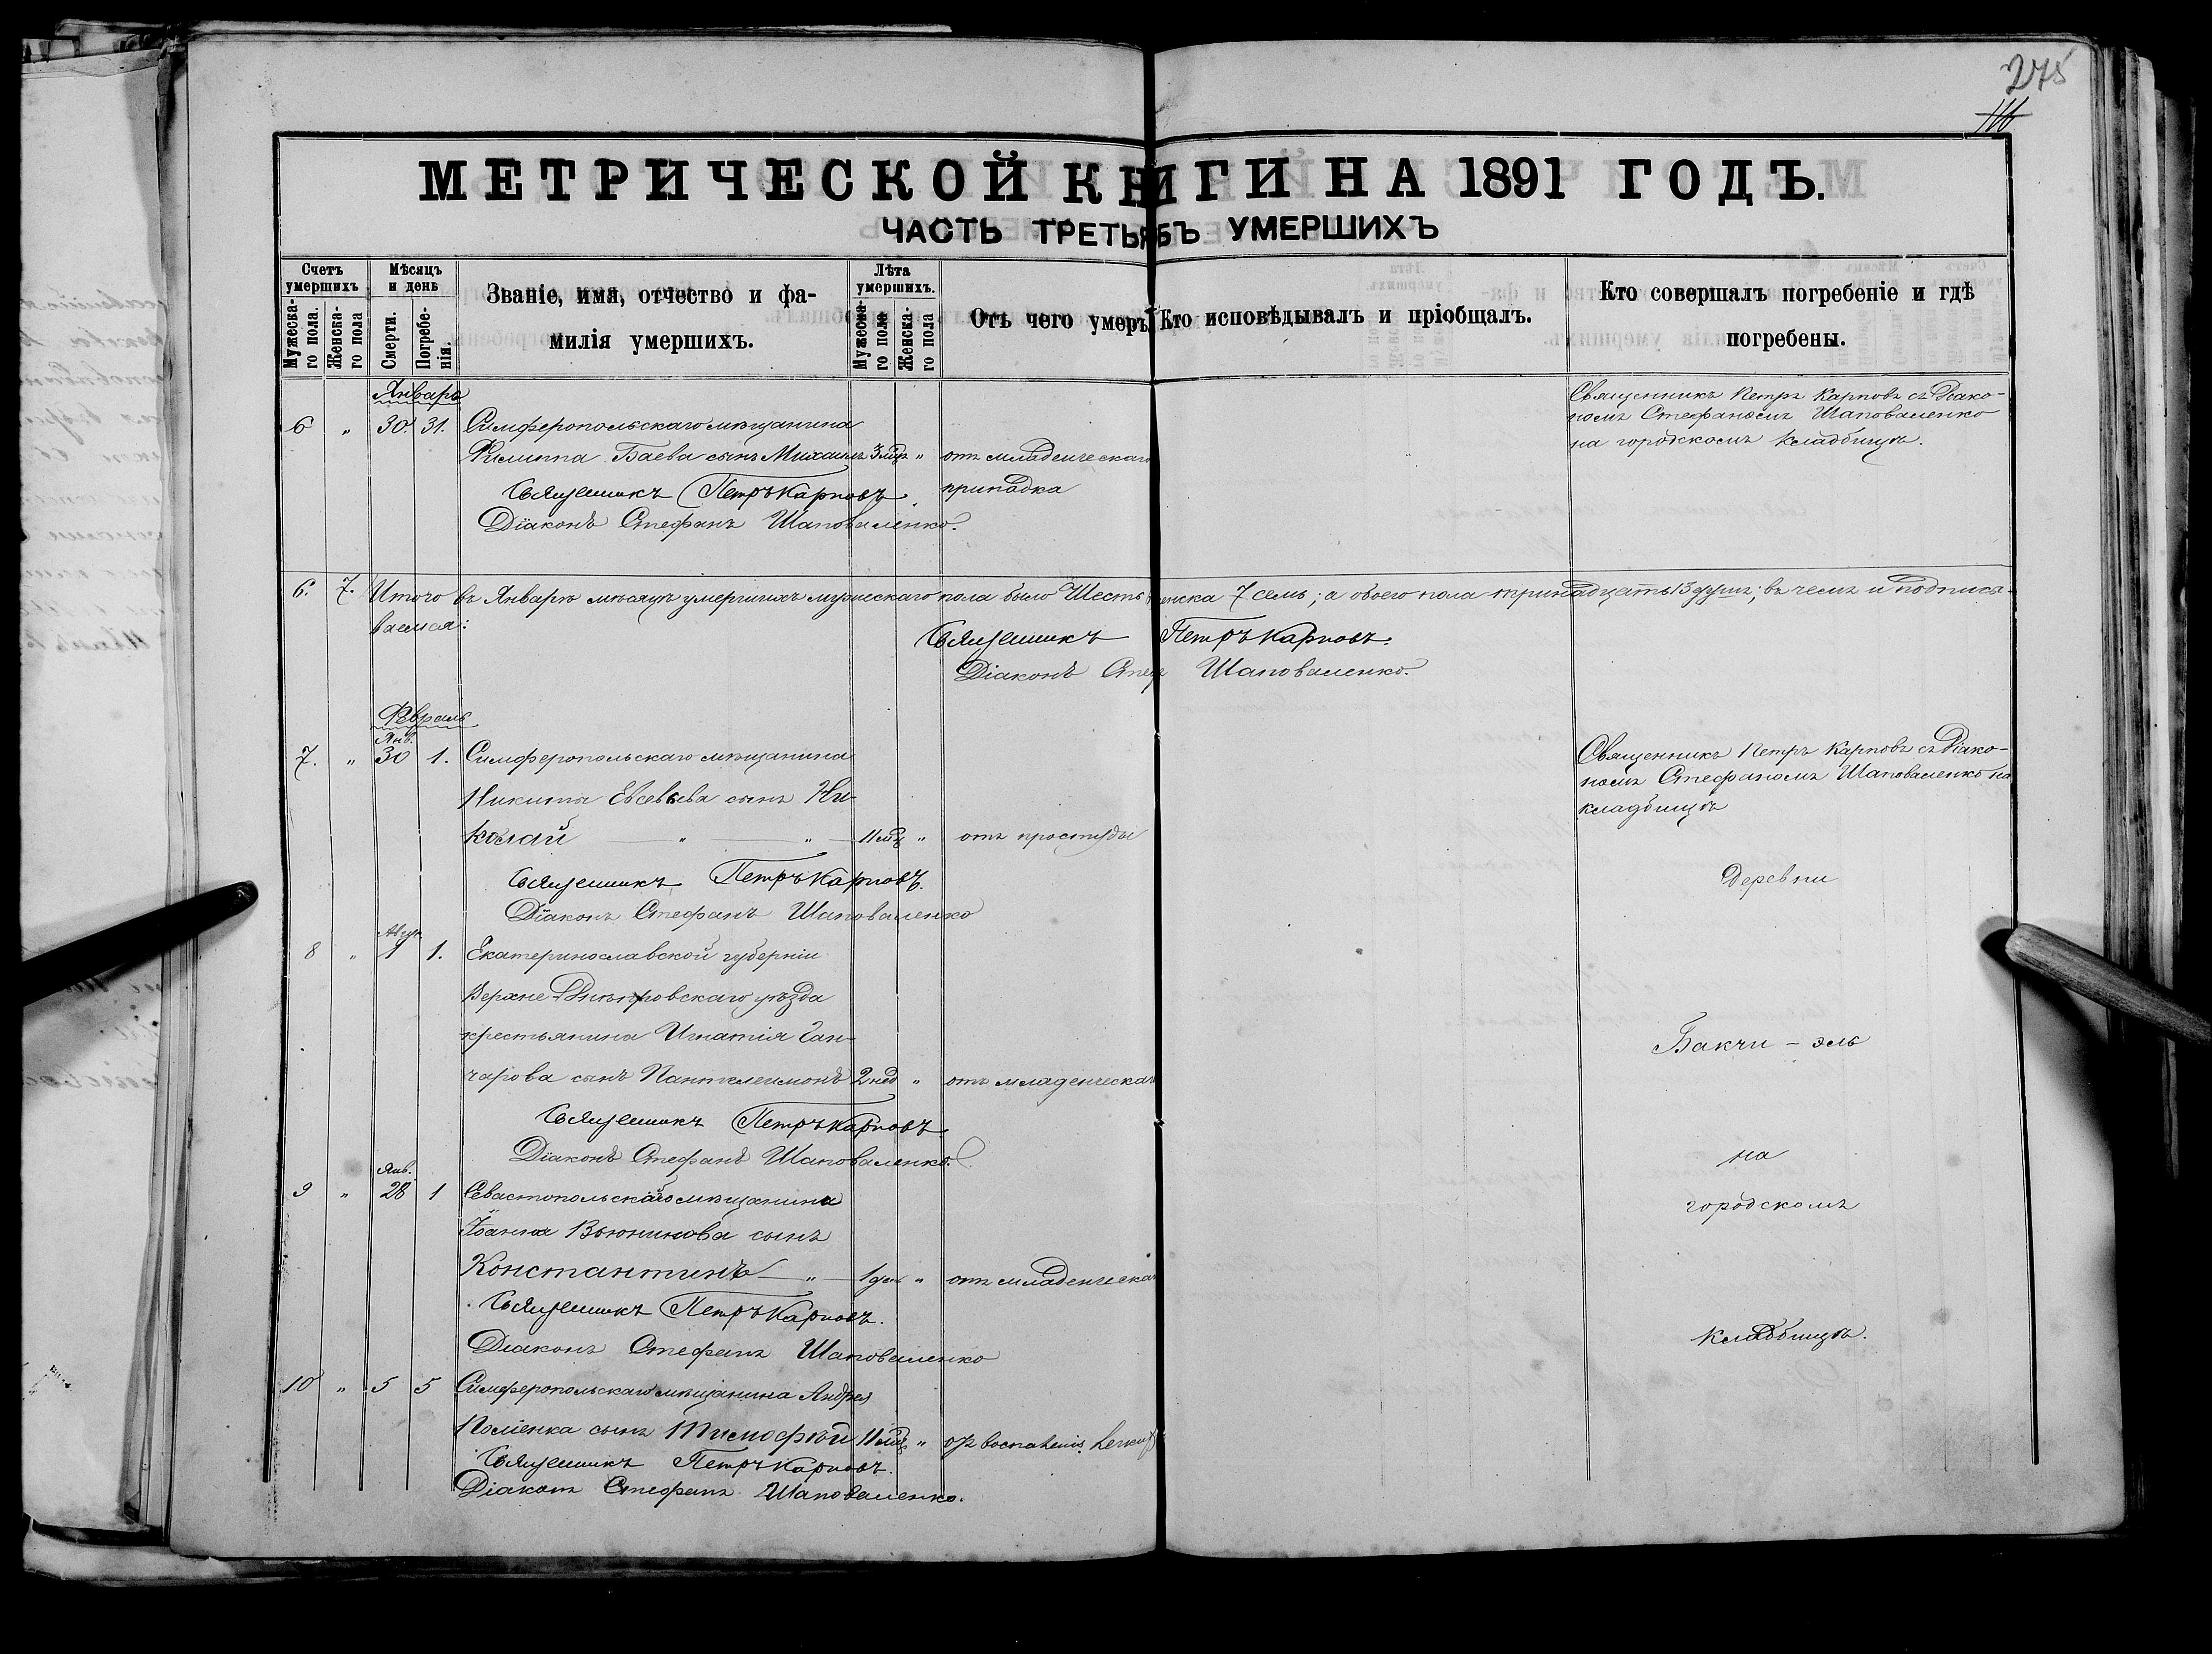 275
МЕТРИЧЕСКОЙ КНИГИ НА 1891 ГОДЪ.
ЧАСТЬ ТРЕТЬЯ УМЕРШИХЪ
Счетъ умершихъ
Мужеска-го пола.
Женска-го пола
Мѣсяцъ и день
Смерти.
Погребе-нія.
Званіе, имя, отчество и фа-
милія умершихъ.
Лѣта умершихъ.
Мужеска-го пола
Женска-го пола
Отъ чего умеръ
Кто исповѣдывалъ и пріобщалъ.
Кто совершалъ погребеніе и гдѣ
погребены.
Январь
6 " 30. 31. Симферопольскаго мѣщанина
Филиппа Баева сынъ Михаилъ 3 мѣц " отъ младенческаго
припадка
Священникъ Петръ Карповъ.
Діаконъ Стефанъ Шаповаленко.
Священникъ Петръ Карповъ съ Діако-
номъ Стефаномъ Шаповаленко
на городскомъ кладбищѣ.
6. 7. Итого въ Январѣ мѣсяцѣ умершихъ мужескаго пола было Шесть женска 7 семь; а обоего пола тринадцать 13 душъ; въ чемъ и подписы-
ваемся:
Священникъ Петръ Карповъ.
Діаконъ Стеф Шаповаленко.
Февраль
Янв.
7. " 30 1. Симферопольскаго мѣщанина
Никиты Евсевьева сынъ Ни-
колай " " 11 мѣц " отъ простуды
Священникъ Петръ Карповъ.
Діаконъ Стефанъ Шаповаленко
Священникъ Петръ Карповъ съ Діако-
номъ Стефаномъ Шаповаленко на
кладбищѣ
Деревни
8 " 1 1. Екатеринославской губерніи
Верхне-Днѣпровскаго уѣзда
крестьянина Игнатія Ган-
чарова сынъ Пантелеимонъ 2 нед " отъ младенческаг
Священникъ Петръ Карповъ
Діаконъ Стефанъ Шаповаленко.
Бакчи - эль
на
Янв.
9 " 28 1 Севастопольскаго мѣщанина
Іоанна Вьюникова сынъ
Константинъ " 1 ден " отъ младенческаг
Священникъ Петръ Карповъ.
Діаконъ Стефанъ Шаповаленко
городскомъ
кладбищѣ.
10 " 5 5 Симферопольскаго мѣщанина Андрея
сынъ Тимофѣй 11 мѣц " отъ воспаленія легкихъ
Священникъ Петръ Карповъ.
Діаконъ Стефанъ Шаповаленко.